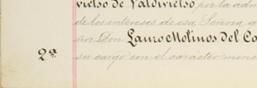 vielso de Valdivielso, por la adm
de los intereses de esa Señora, a
ñor Don Lauro Molinos del Co
2ª su cargo con el carácter mance